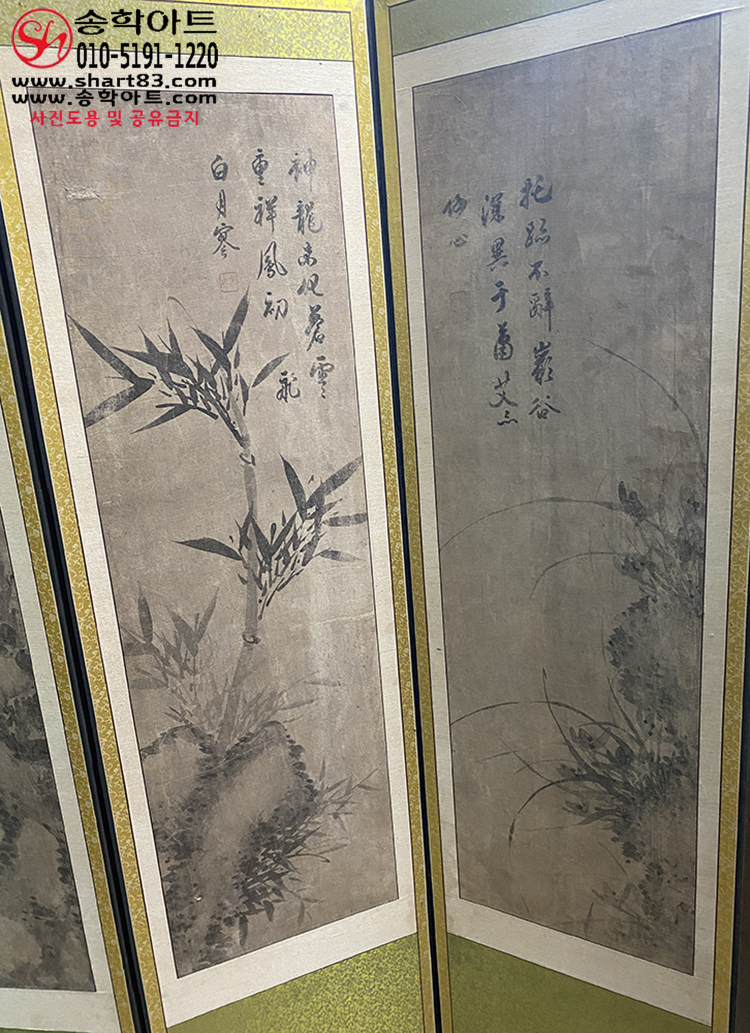 송학아트
010-5191-1220
www.shart83.com
www.송학아트.com
사진도용 및 공유금지
托跡不辭巖谷
深異于蕭艾
同心
神龍未化蒼雲
重祥鳳初飛
白月寒